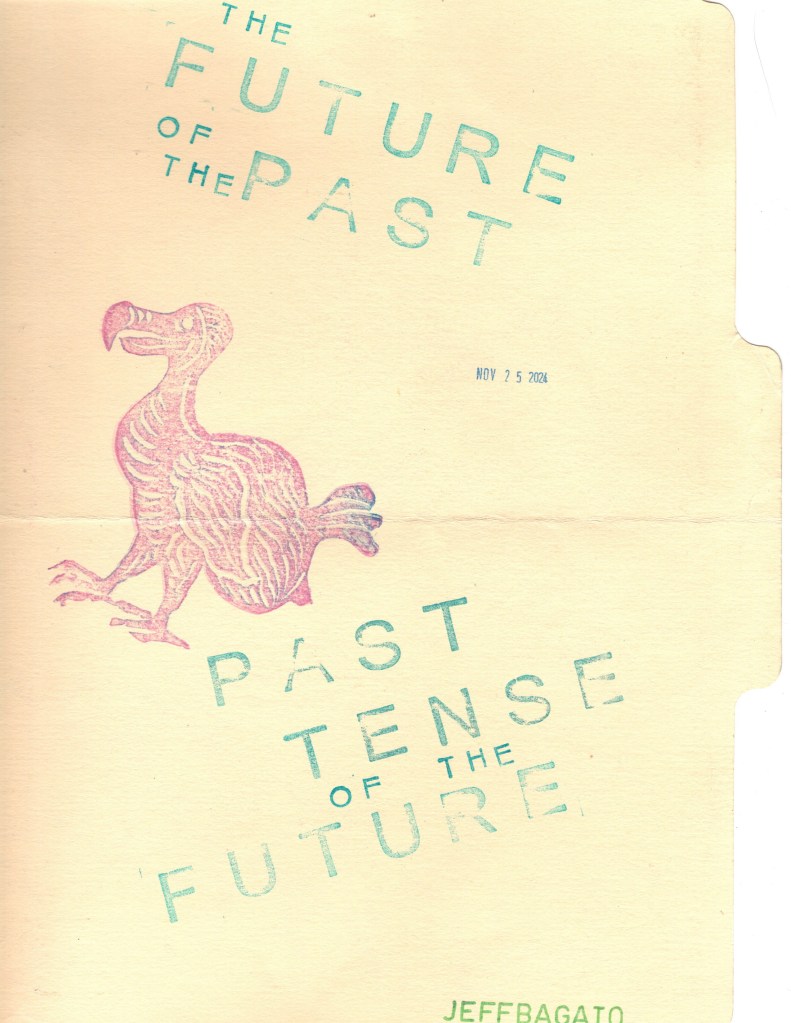 THE
FUTURE
OF
THE PAST
NOV 25 2024
PAST
TENSE
OF THE
FUTURE
JEFFBAGATO